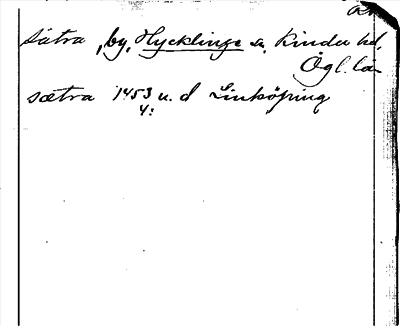 Sätra, by, Hycklinge sn, Kinda hd,
Ögl. län
sætra 1453 u. d Linköping
4: